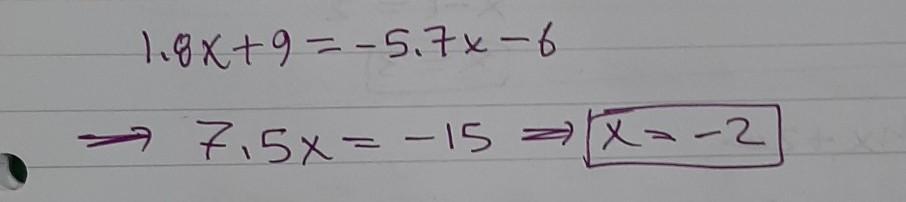 1.8x+9=-5.7x-6
⇒ 7.5x=-15 ⇒ x=-2